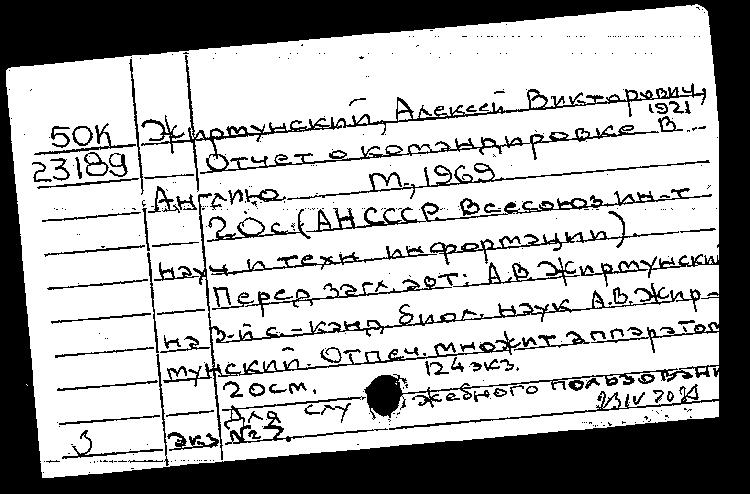 Жирмунский, Алексей Викторович,
1921
50К
23189
Отчет о командировке в
Англию. М., 1969
20с. (АН СССР. Всесоюз. ин-т
науч. и техн. информации).
Перед загл. авт: А.В. Жирмунский
на 3-й с. - канд. биол. наук А.В. Жир-
мунский. Отпеч. множит. аппаратом
20см. 124 экз.
Для служебного пользовани
3 экз. №27.